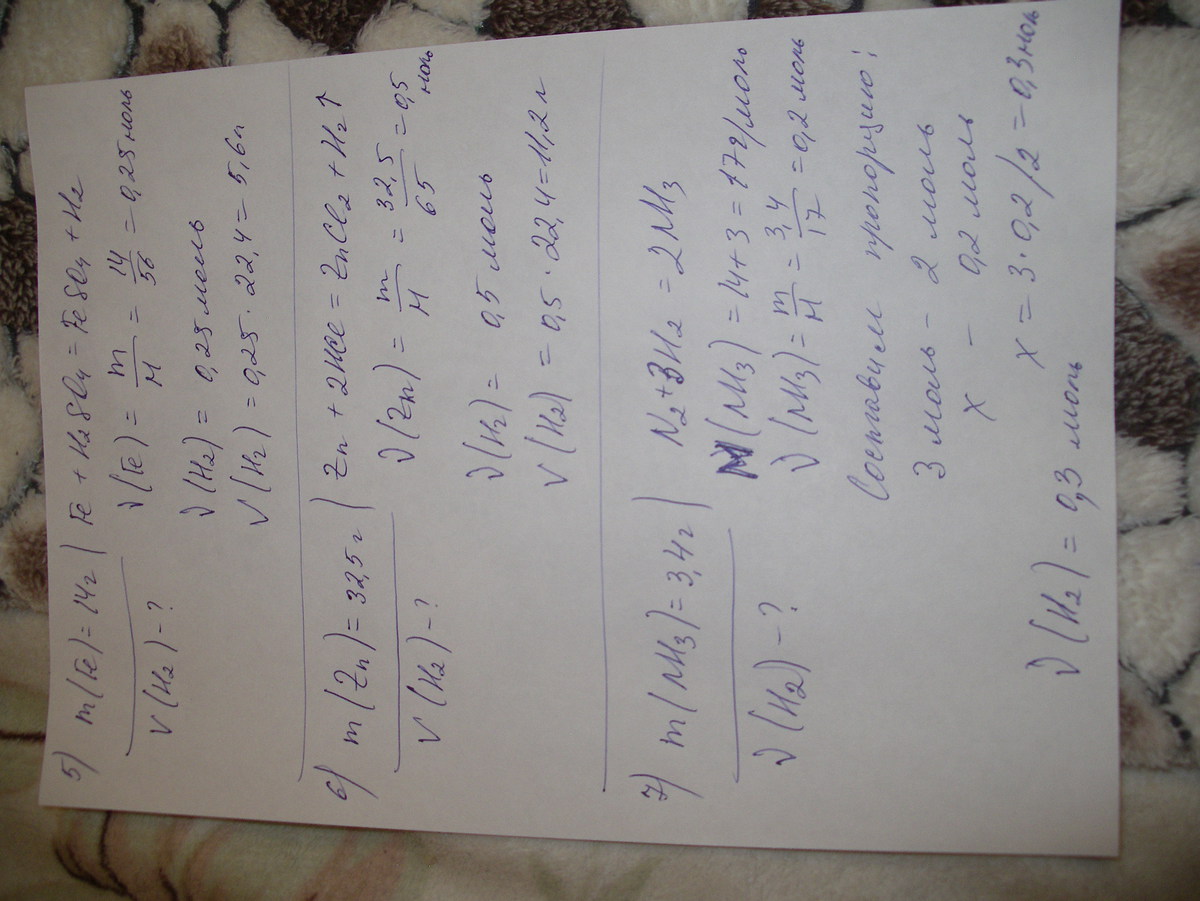 5) m(Fe)=14г | Fe + H₂SO₄ = FeSO₄ = FeSO₄ + H₂
V(H₂) - ? ν(Fe) = m/M = 14/56 = 0,25 моль
ν(H₂) = 0,25 моль
V(H₂) = 0,25 · 22,4 = 5,6 л
6) m(Zn) = 32,5 г | Zn + 2HCl = ZnCl₂ + H₂↑
V(H₂) - ? ν(Zn) = m/M = 32,5/65 = 0,5 моль
ν(H₂) = 0,5 моль
V(H₂) = 0,5 · 22,4 = 11,2 л
7) m(NH₃) = 3,4г | N₂ + 3H₂ = 2NH₃
M(NH₃) = 14 + 3 = 17 г/моль
ν(H₂) - ? ν(NH₃) = m/M = 3,4/17 = 0,2 моль
Составим пропорцию:
3 моль - 2 моль
x - 0,2 моль
x = 3 · 0,2/2 = 0,3 моль
ν(H₂) = 0,3 моль